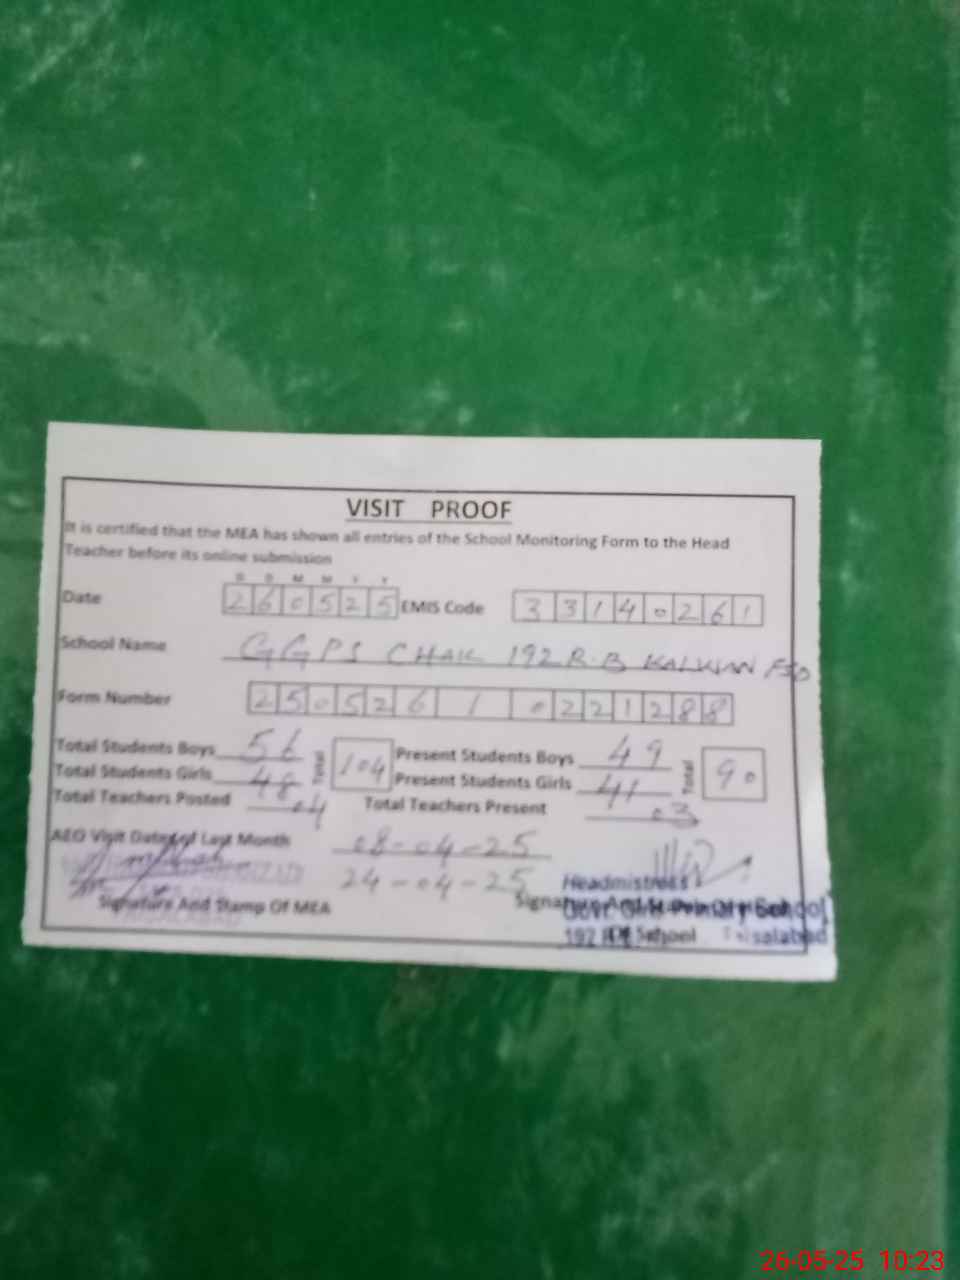 VISIT PROOF
It is certified that the MEA has shown all entries of the School Monitoring Form to the Head
Teacher before its online submission
D D M M Y Y
Date 2 6 0 5 2 5 EMIS Code 3 3 1 4 0 2 6 1
School Name GGPS CHAK 192 R.B FSD
Form Number 2 5 0 5 2 6 1 0 2 2 1 2 8 8
Total Students Boys 56 Total 104 Present Students Boys 49 Total 90
Total Students Girls 48 Present Students Girls 41
Total Teachers Posted 04 Total Teachers Present 03
AEO Visit Dates of Last Month 08-04-25
24-04-25
Headmistress
Signature And Stamp Of MEA Signature And Stamp Of Head
Govt. Girls Primary School
Of School
192 Faisalabad
26-05-25 10:23